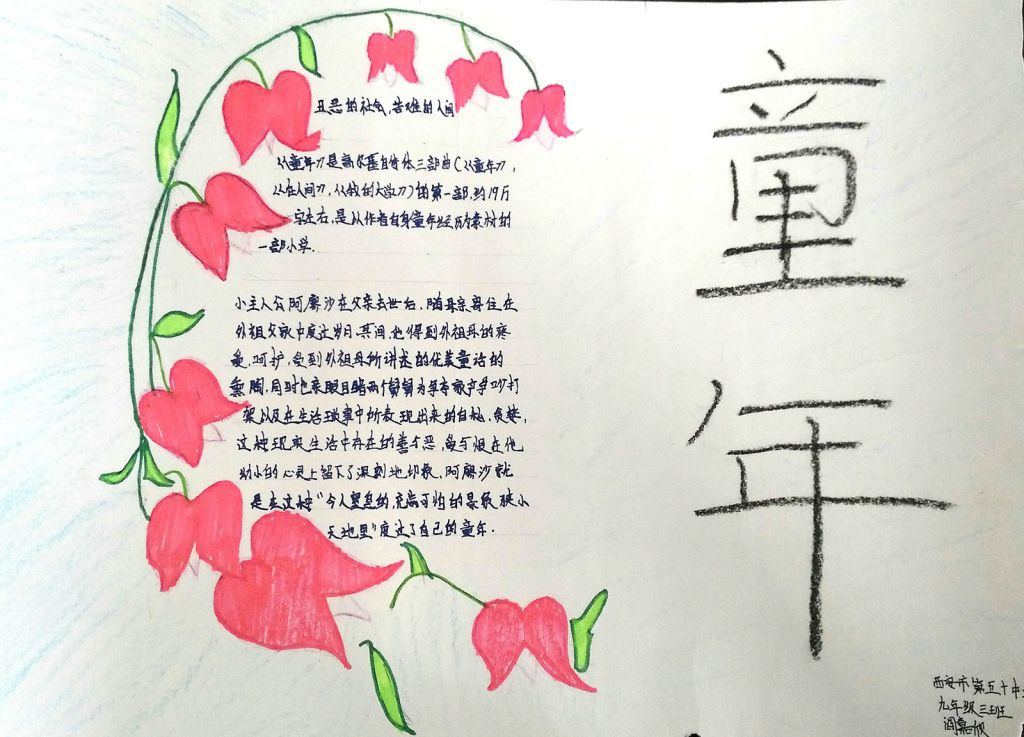 丑恶的社会,苦难的人间
《童年》是高尔基自传体三部曲(《童年》,
《在人间》,《我的大学》)的第一部.约19万
字左右,是以作者自身童年经历为素材的
一部小学.
小主人公阿廖沙在父亲去世后,随母亲寄住在
外祖父家中度过岁月.其间,他得到外祖母的疼
爱,呵护,受到外祖母所讲述的优美童话的
熏陶,同时也亲眼目睹两个舅舅为争夺家产争吵打
架以及在生活琐事中所表现出来的自私、贪婪,
这种现实生活中存在的善与恶,爱与恨在他
幼小的心灵上留下了深刻地印象,阿廖沙就
是在这种"令人窒息的,充满可怕的景象狭小
天地里"度过了自己的童年.
童年
西安市第五十中
九年级三班